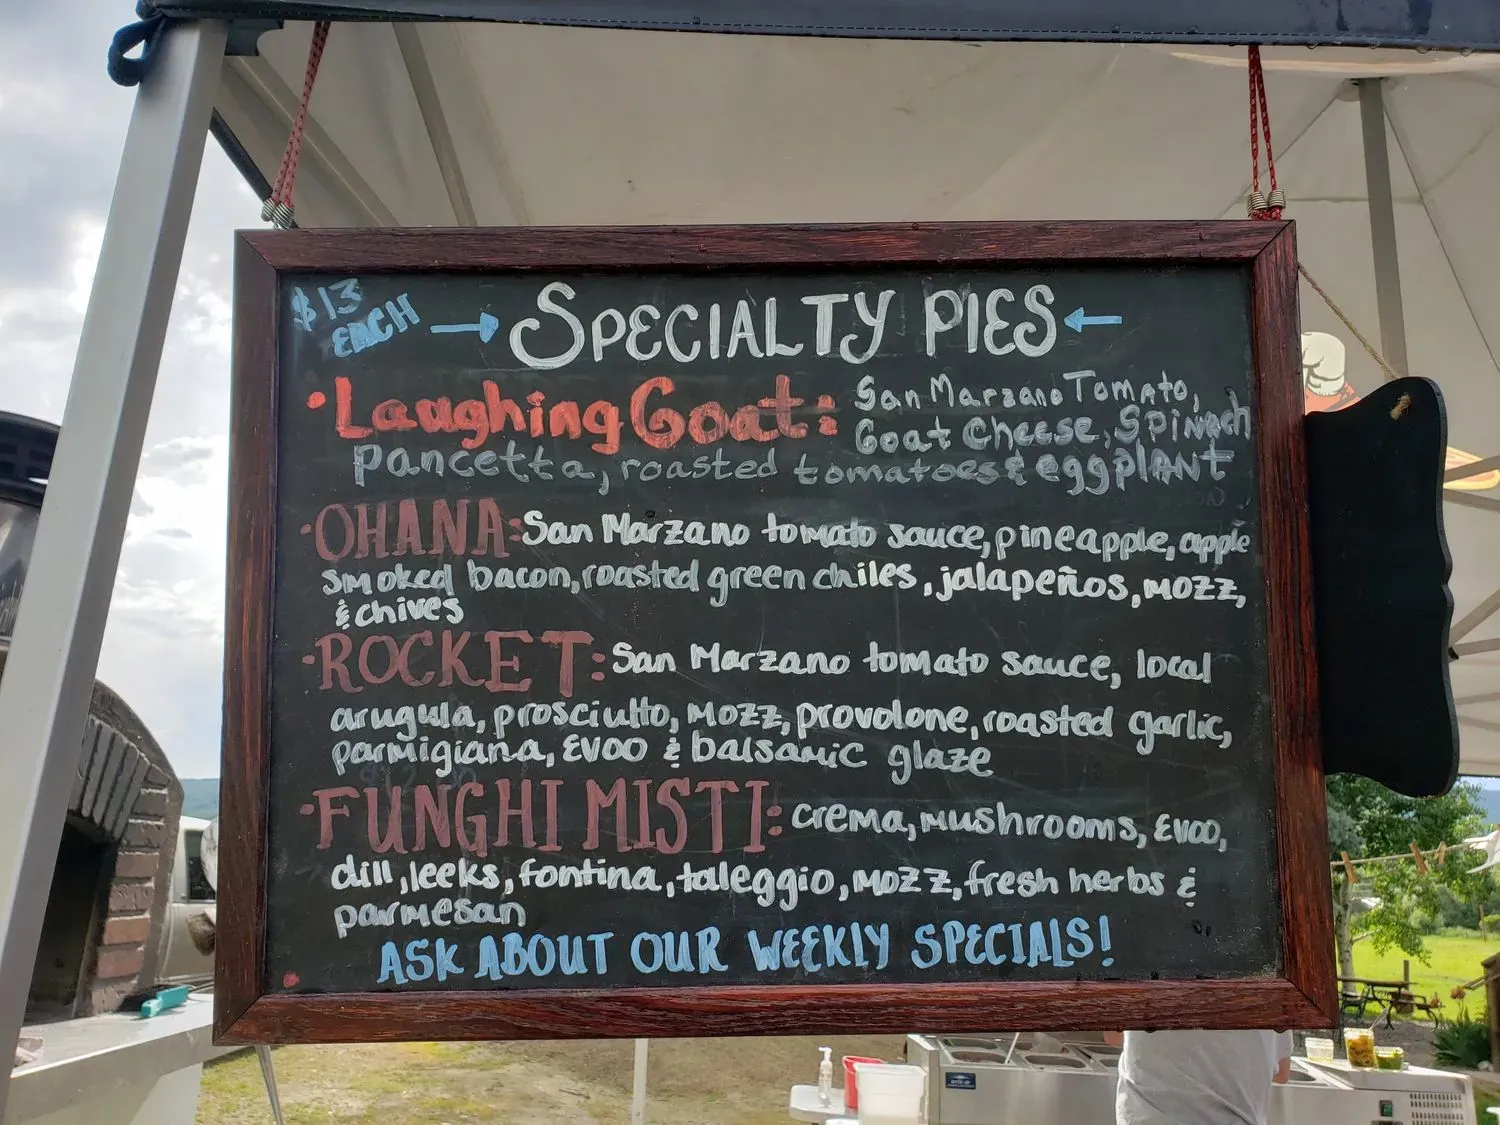 $13
EACH
SPECIALTY PIES
• Laughing Goat: San Marzano Tomato,
Goat Cheese, Spinach
pancetta, roasted tomatoes & eggplant
• OHANA: San Marzano tomato sauce, pineapple, apple
smoked bacon, roasted green chiles, jalapeños, mozz,
& chives
• ROCKET: San Marzano tomato sauce, local
arugula, prosciutto, mozz, provolone, roasted garlic,
parmigiana, EVOO & balsamic glaze
• FUNGHI MISTI: crema, mushrooms, EVOO,
dill, leeks, fontina, taleggio, mozz, fresh herbs &
parmesan
ASK ABOUT OUR WEEKLY SPECIALS!